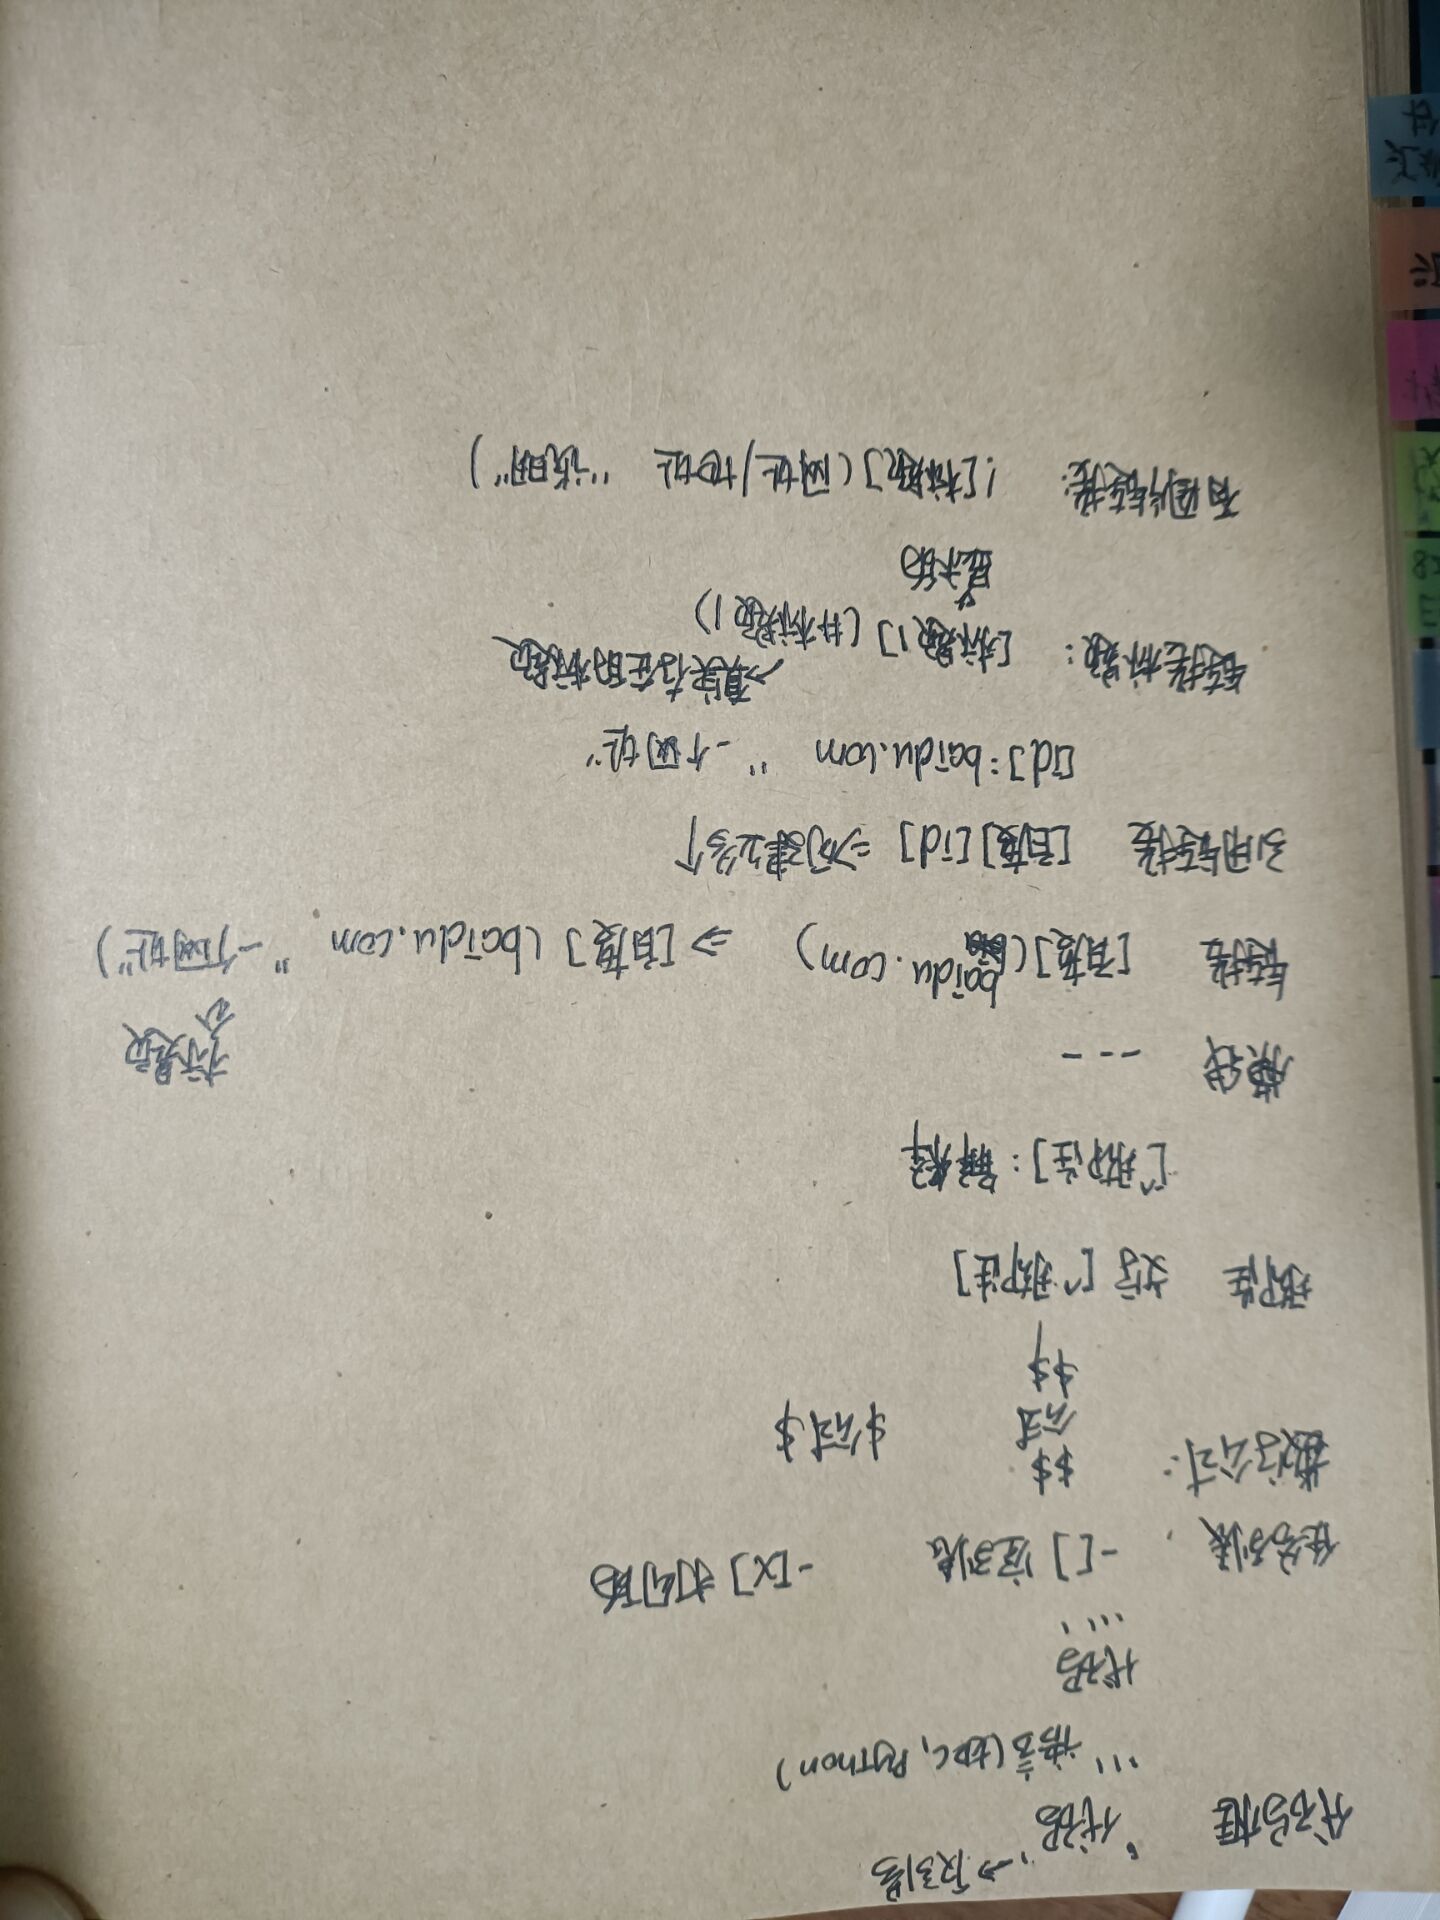 代码框 `代码` → 反引号
``` 语言(如C, Python)
代码
```
任务列表, -[ ] 空列表 -[x] 打勾的
数学公式: $$
公式 $公式$
$$
脚注 文字[^脚注]
[^脚注]: 解释
横线 ---
标题
链接 [百度](baidu.com) ⇒ [百度](baidu.com "一个网址")
引用链接 [百度][id] ⇒可建立多个
[id]:baidu.com "一个网址"
→真实存在的标题
链接标题: [标题1](#标题1)
显示的
有图片链接: ![标题](网址/地址 "说明")